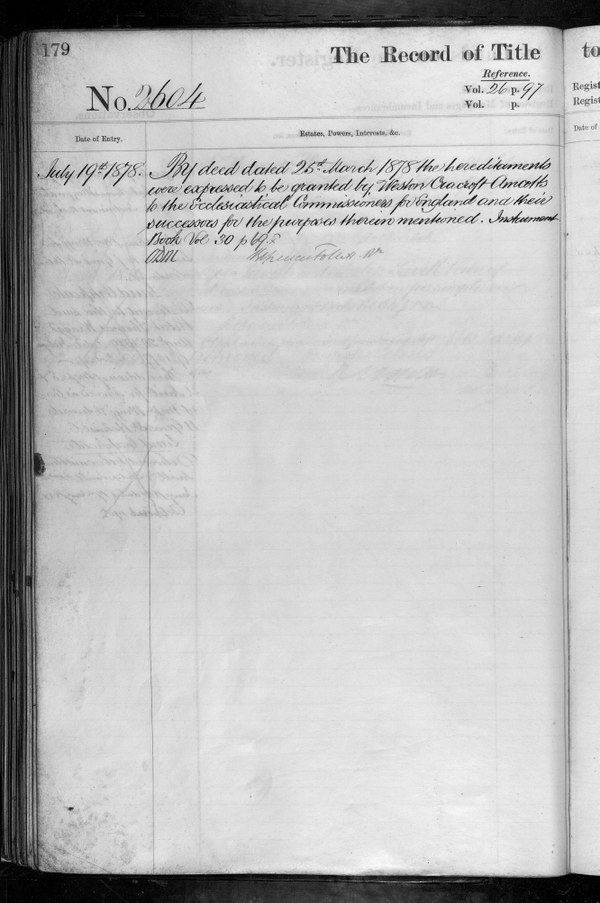 179
The Record of Title
Reference.
No. 2604
Vol. 26 p. 97
Vol. p.
Date of Entry.
Estates, Powers, Interests, &c.
July 19th 1878.
By deed dated 25th March 1878 the hereditaments
were expressed to be granted by Weston Cracroft Amcotts
to the Ecclesiastical Commissioners for England and their
successors for the purposes therein mentioned. Instrument
Book Vol 30 p 69
to
Regist
Regist
Date of